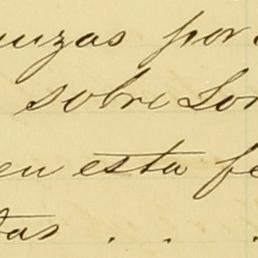 por
sobre Lon
en esta fe
tas . . .